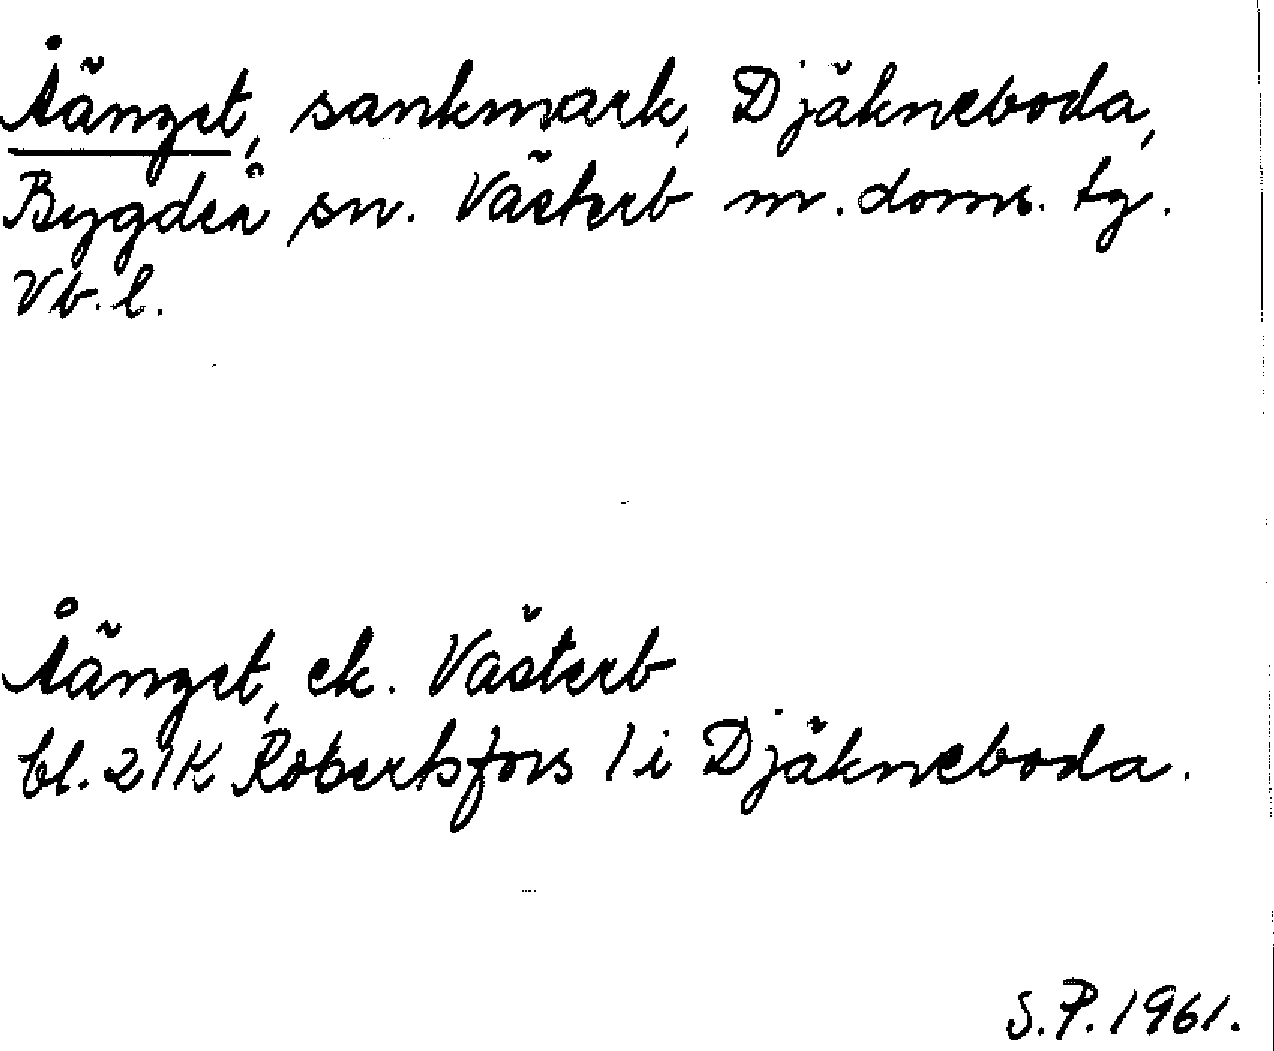 Åänget, sankmark, Djäkneboda,
Bygdeå sn. Västerb m. doms. tg.
Vb. l.
Åänget, ek. Västerb
bl. 21K Robertsfors 1 i Djäkneboda.
S.P. 1961.